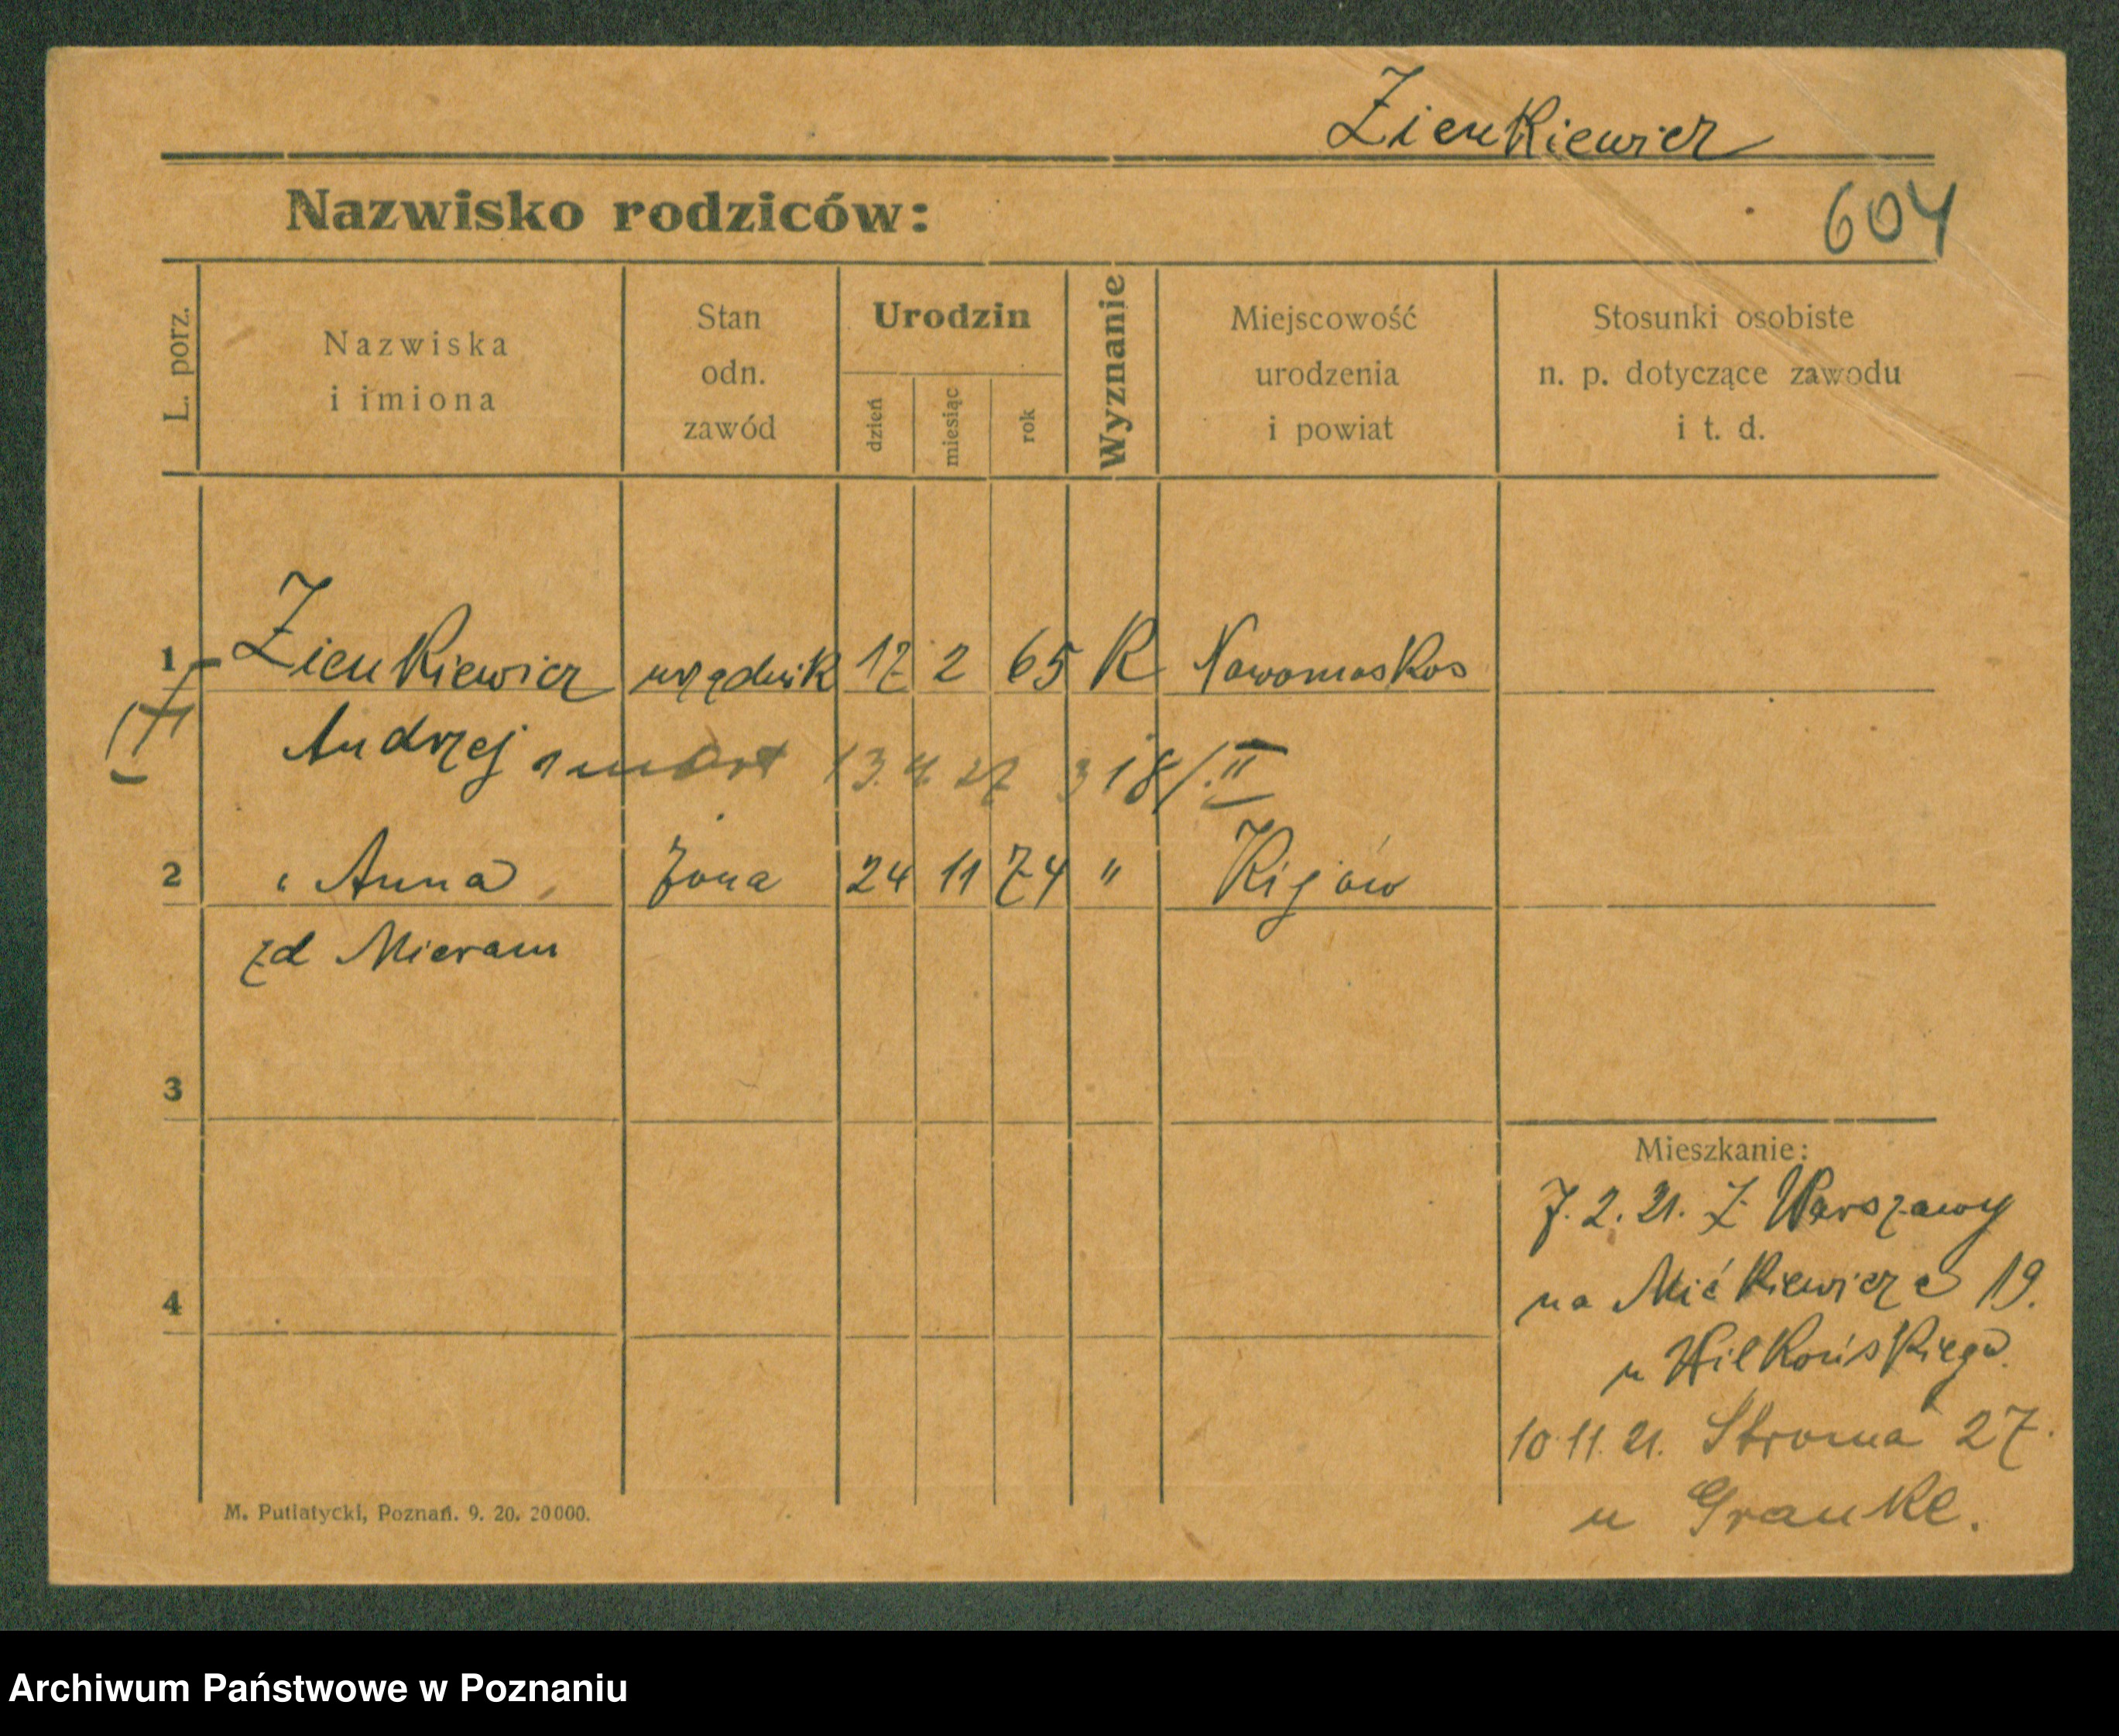 Zienkiewicz
Nazwisko rodziców:
604
L. porz.
Nazwiska
i imiona
Stan
odn.
zawód
Urodzin
dzień
miesiąc
rok
Wyznanie
Miejscowość
urodzenia
i powiat
Stosunki osobiste
n. p. dotyczące zawodu
i t. d.
1 Zienkiewicz urzędnik 17 2 65 R Nowomoskos
Andrzej zmarł 13. 4. 27 318/II
2 " Anna żona 24 11 74 " Kijów
zd Mieram
3
Mieszkanie:
7. 2. 21. Z Warszawy
na Mickiewicza 19.
4
u Wilkońskiego.
10 11. 21. Stroma 27.
u Granke.
M. Putiatycki, Poznań. 9. 20. 20000.
Archiwum Państwowe w Poznaniu